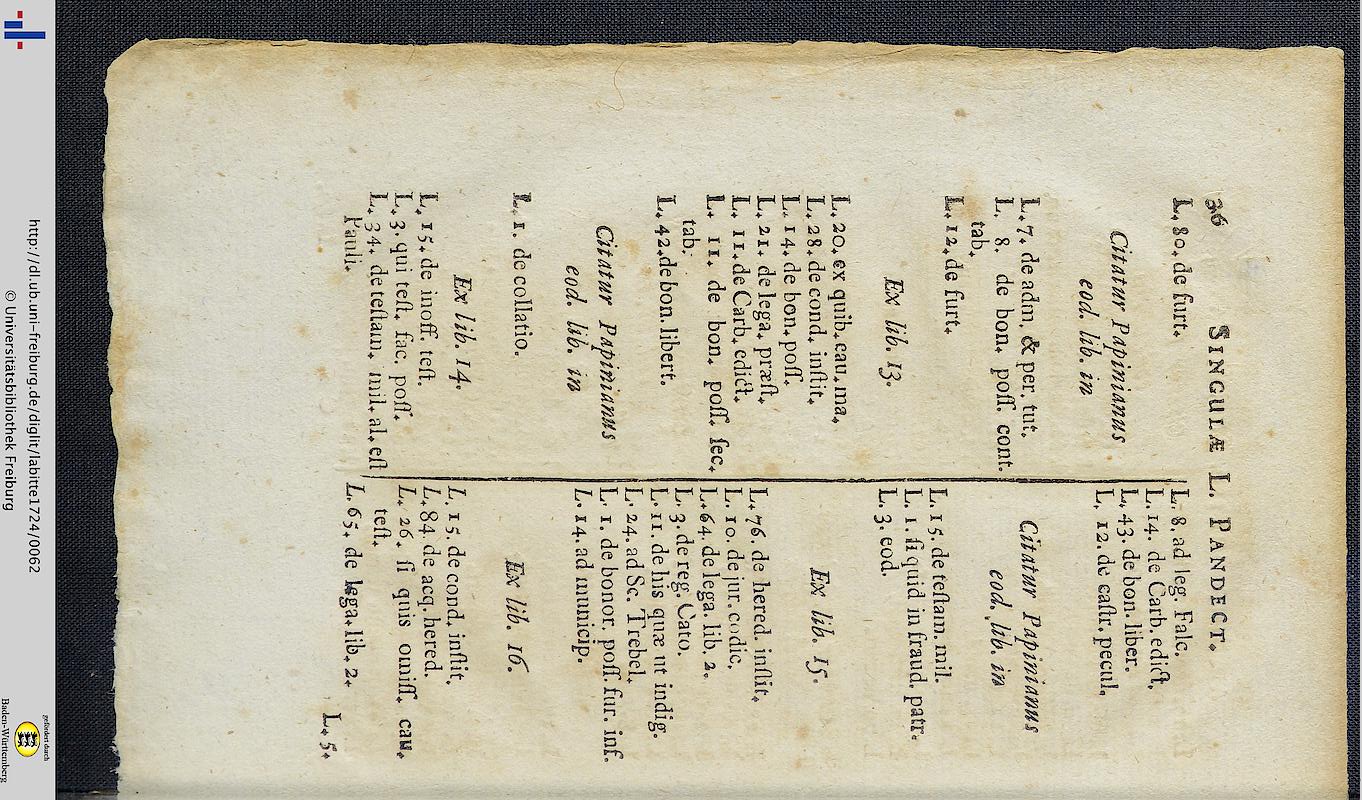 36 SINGULÆ L. PANDECT.
L. 80. de furt.
Citatur Papinianus
eod. lib. in
L. 7. de adm. & per. tut.
L. 8. de bon. poſſ. cont.
tab.
L. 12. de furt.
Ex lib. 13.
L. 20. ex quib. cau. ma.
L. 28. de cond. inſtit.
L. 14. de bon. poſſ.
L. 21. de lega. præſt.
L. 11. de Carb. edict.
L. 11. de bon. poſſ. ſec.
tab.
L. 42. de bon. libert.
Citatur Papinianus
eod. lib. in
L. 1. de collatio.
Ex lib. 14.
L. 15. de inoff. teſt.
L. 3. qui teſt. fac. poſſ.
L. 34. de teſtam. mil. al. eſt
Pauli.
L. 8. ad leg. Falc.
L. 14. de Carb. edict.
L. 43. de bon. liber.
L. 12. de caſtr. pecul.
Citatur Papinianus
eod. lib. in
L. 15. de teſtam. mil.
L. 1. ſi quid in fraud. patr.
L. 3. eod.
Ex lib. 15.
L. 76. de hered. inſtit.
L. 10. de jur. codic.
L. 64. de lega. lib. 2.
L. 3. de reg. Cato.
L. 11. de his quæ ut indig.
L. 24. ad Sc. Trebel.
L. 1. de bonor. poſſ. fur. inf.
L. 14. ad municip.
Ex lib. 16.
L. 15. de cond. inſtit.
L. 84. de acq. hered.
L. 26. ſi quis omiſſ. cau.
teſt.
L. 65. de lega. lib. 2.
L. 5.
http://dl.ub.uni-freiburg.de/diglit/labitte1724/0062
© Universitätsbibliothek Freiburg
gefördert durch
Baden-Württemberg